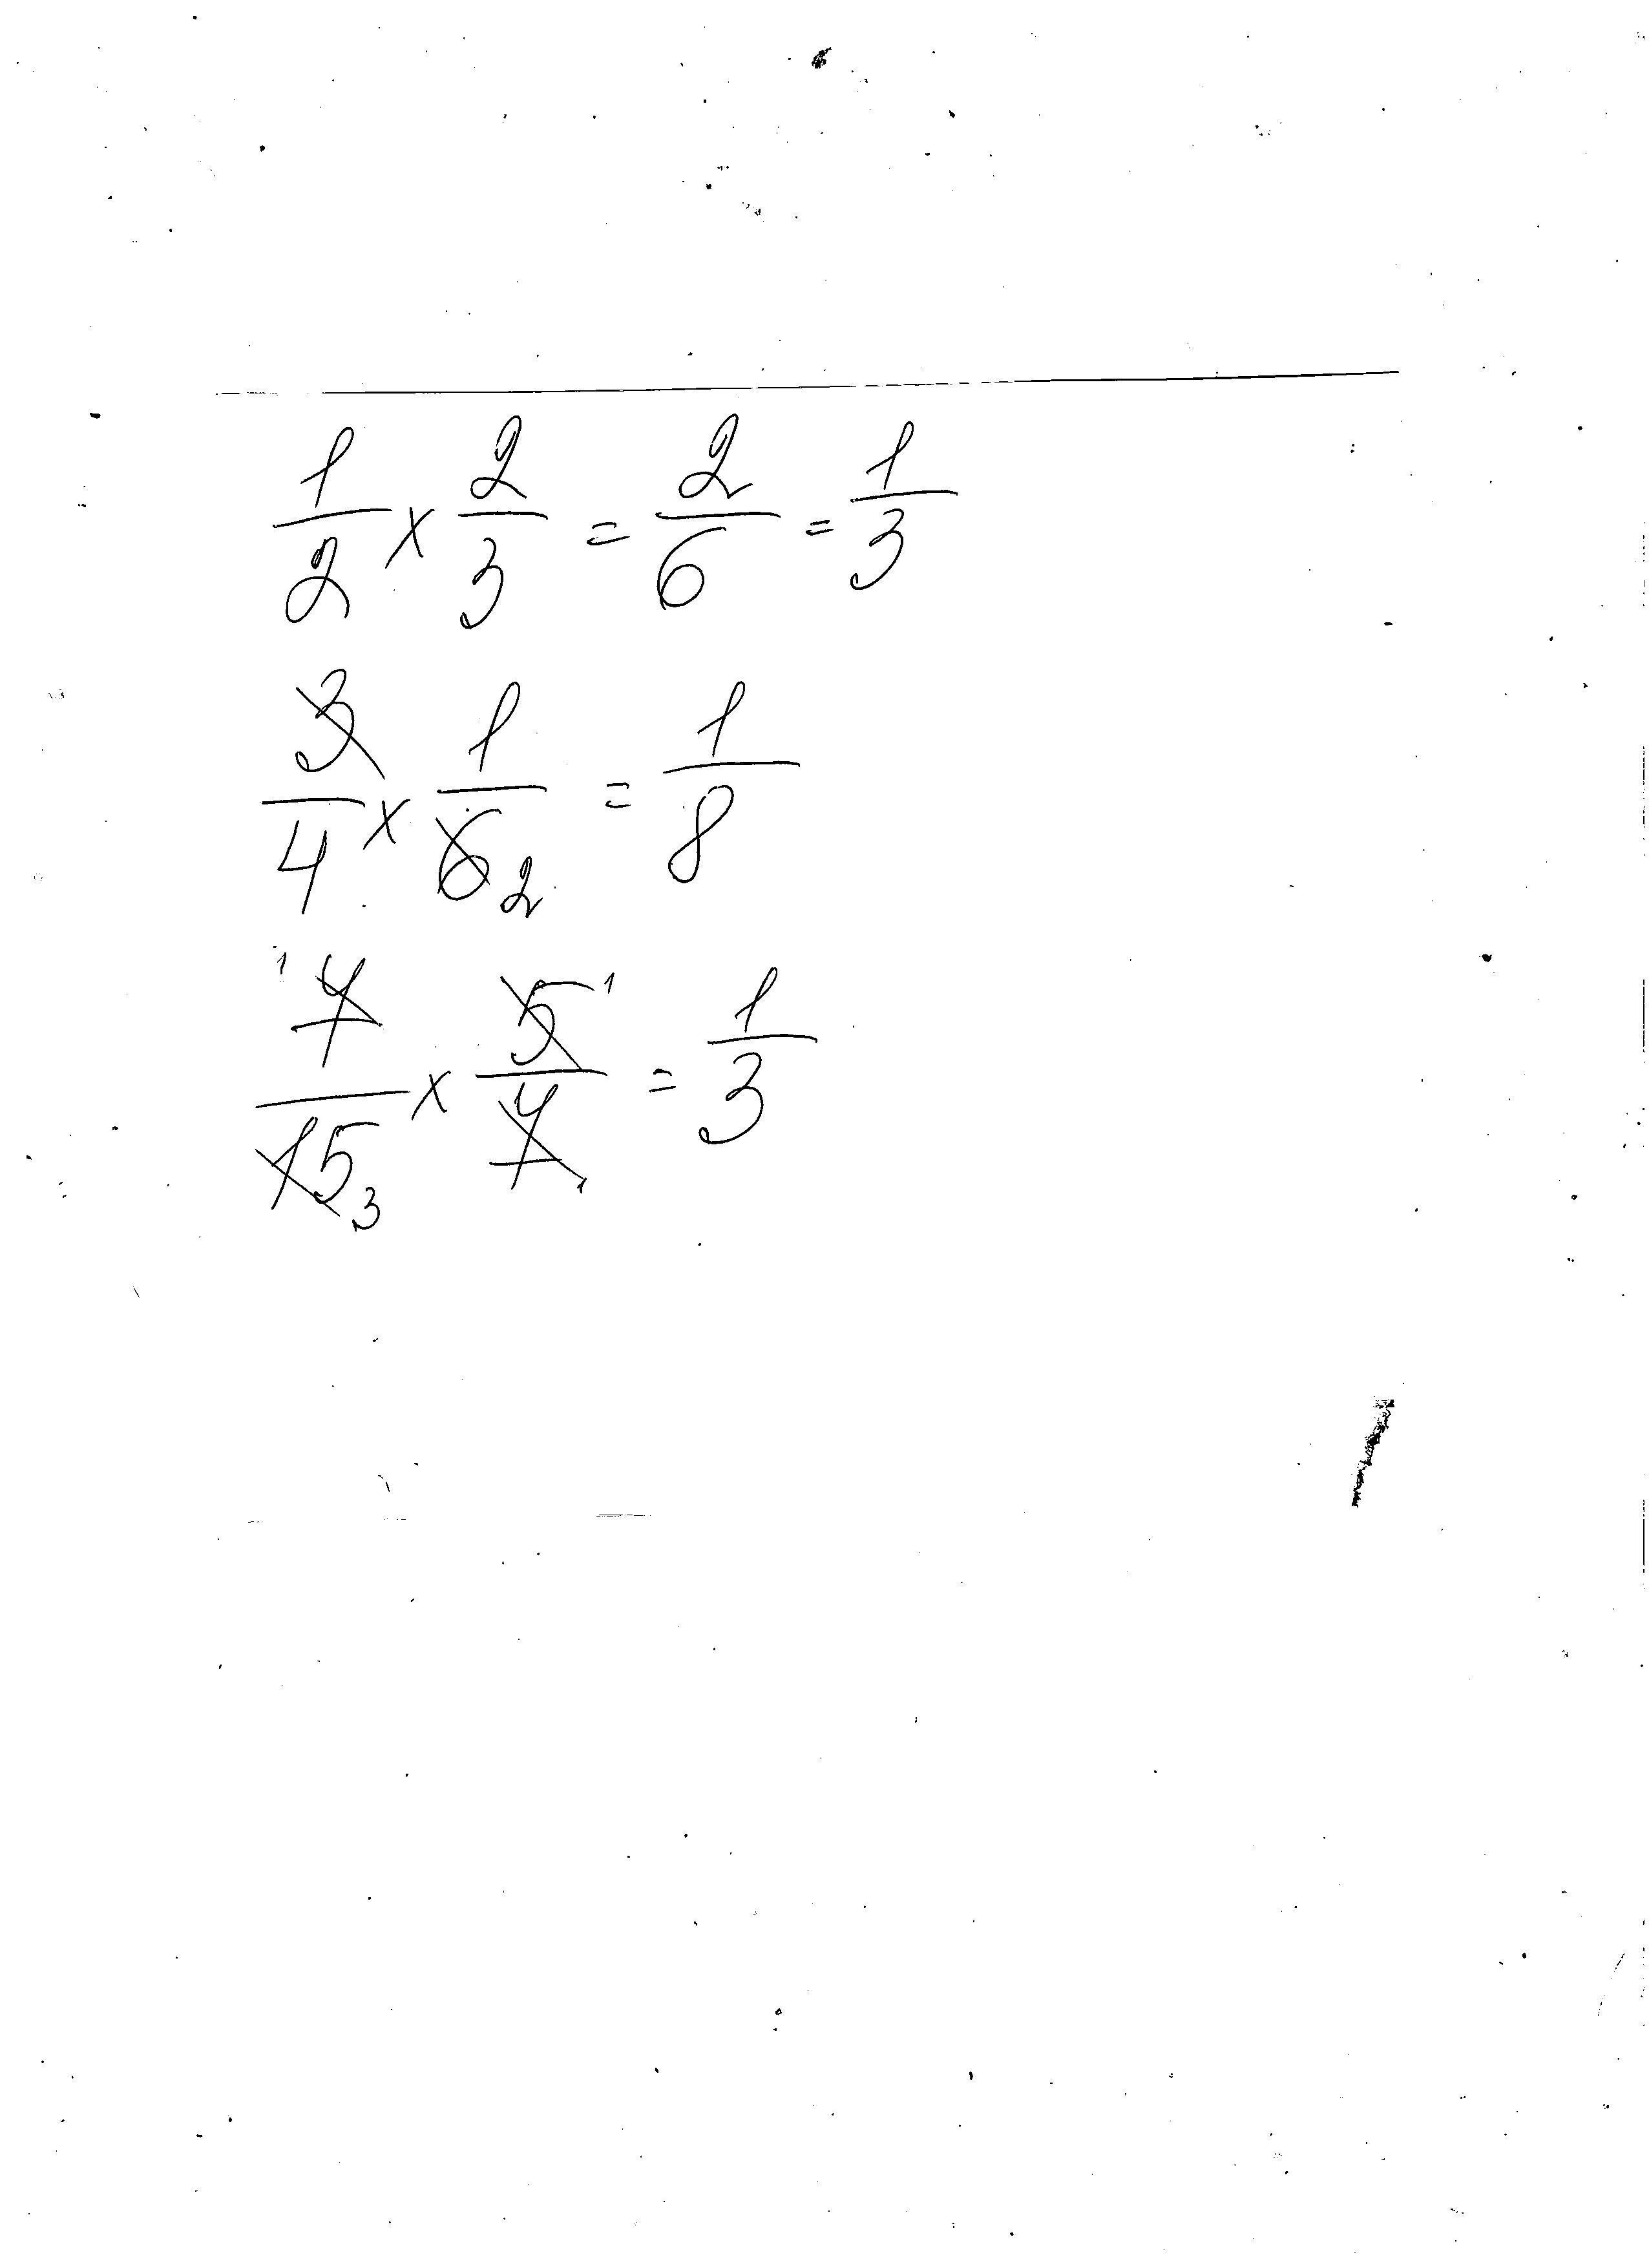 1/2 x 2/3 = 2/6 = 1/3
3/4 x 1/6 2 = 1/8
1 7/15 3 x 5 1/7 1 = 1/3